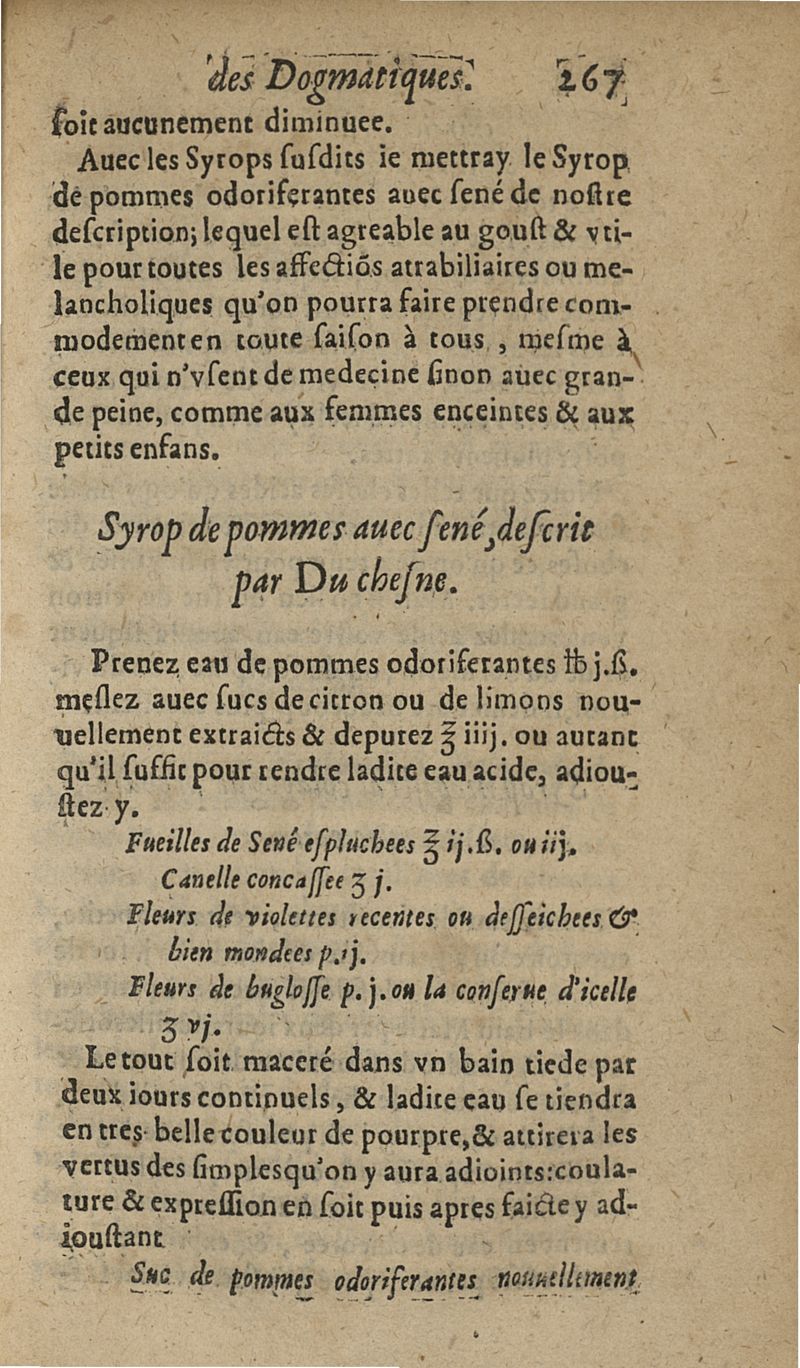 des Dogmatiques. 267
ſoit aucunement diminuee.
Auec les Syrops ſuſdits ie mettray le Syrop
de pommes odoriferantes auec ſené de noſtre
deſcription; lequel eſt agreable au gouſt & vti-
le pour toutes les affectiõs atrabiliaires ou me-
lancholiques qu'on pourra faire prendre com-
modement en toute ſaiſon à tous , meſme à
ceux qui n'vſent de medecine ſinon auec gran-
de peine, comme aux femmes enceintes & aux
petits enfans.
Syrop de pommes auec ſené, deſcrit
par Du cheſne.
Prenez eau de pommes odoriferantes ℔ j.ß.
meſlez auec ſucs de citron ou de limons nou-
uellement extraicts & depurez ℥ iiij. ou autant
qu'il ſuffit pour rendre ladite eau acide, adiou-
ſtez y.
Fueilles de Sené eſpluchees ℥ ij.ß. ou iij.
Canelle concaſſee ʒ j.
Fleurs de violettes recentes ou deſſeichees &
bien mondees p.ij.
Fleurs de bugloſſe p. j. ou la conſerue d'icelle
ʒ vj.
Le tout ſoit maceré dans vn bain tiede par
deux iours continuels, & ladite eau ſe tiendra
en tres belle couleur de pourpre, & attirera les
vertus des ſimples qu'on y aura adioints: coula-
ture & expreſſion en ſoit puis apres faicte y ad-
iouſtant
Suc de pommes odoriferantes nouuellement